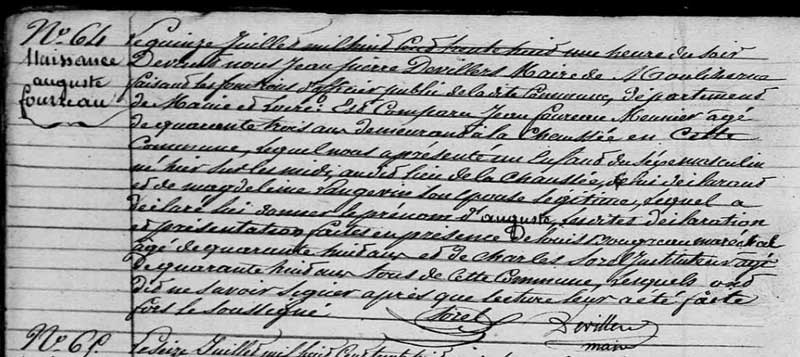 N°. 64
Naissance
auguste
fourneau
Le quinze Juillet mil huit cent trente huit une heure du soir
Devant nous Jean pierre Devillers Maire de
faisant les fonctions d'officier public de la dite Commune, département
de Maine et Loire. Est Comparu Jean fourneau Meunier agé
de quarante trois ans demeurant à la Chaussée en Cette
Commune, lequel nous a présenté un Enfant du Sexe masculin
né hier sur les midi, au dit lieu de la Chaussée, de lui déclarant
et de magdeleine Langevin son épouse légitime, lequel a
déclaré lui donner le prénom d'auguste, les dites déclaration
et présentation faites en présence de Louis maréchal
agé de quarante huit ans et de Charles Soret Instituteur agé
de quarante huit ans tous de Cette Commune, lesquels ont
dit ne savoir signer après que lecture leur a été faite
fors le soussigné.
Soret Devillers
maire
N°. 65.
Le Seize Juillet mil huit Cent trente huit